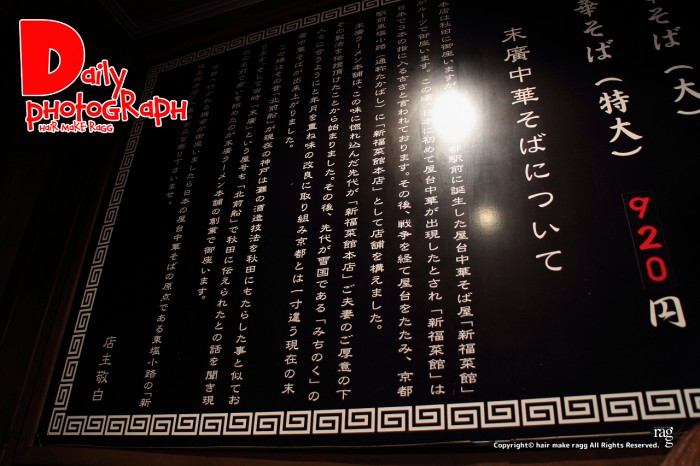 Daily
photograph
Hair Make Ragg
そば（大）
華そば（特大）
920円
末廣中華そばについて
本店は秋田に御座いますが
都駅前に誕生した屋台中華そば屋「新福菜館」
がルーツで御座います。この
初めて屋台中華が出現したとされ「新福菜館」は
日本で
本の指に入る古さと言われております。その後、戦争を経て屋台をたたみ、京都
駅前東塩小路（通称たかばし）に「新福菜館本店」として店舗を構えました。
末廣ラーメン本舗は、この味に惚れ込んだ先代が「新福菜館本店」ご夫妻のご厚意の下
その製法を伝授頂いたことから始まりました。その後、先代が雪国である「みちのく」の
人々に合うようにと年月を重ね味の改良に取り組み京都とは一寸違う現在の末
廣中華そばが出来上がりました。
この様はその昔、「北前船」が現在の神戸は灘の酒造技法を秋田にもたらした事と似てお
「末廣」という屋号を「北前船」で秋田に伝えられたとの話を聞き現
末廣ラーメン本舗の創業で御座います。
御座いましたら日本の屋台中華そばの原点である東塩小路の「新
店主敬白
ragg
Copyright© hair make ragg All Rights Reserved.